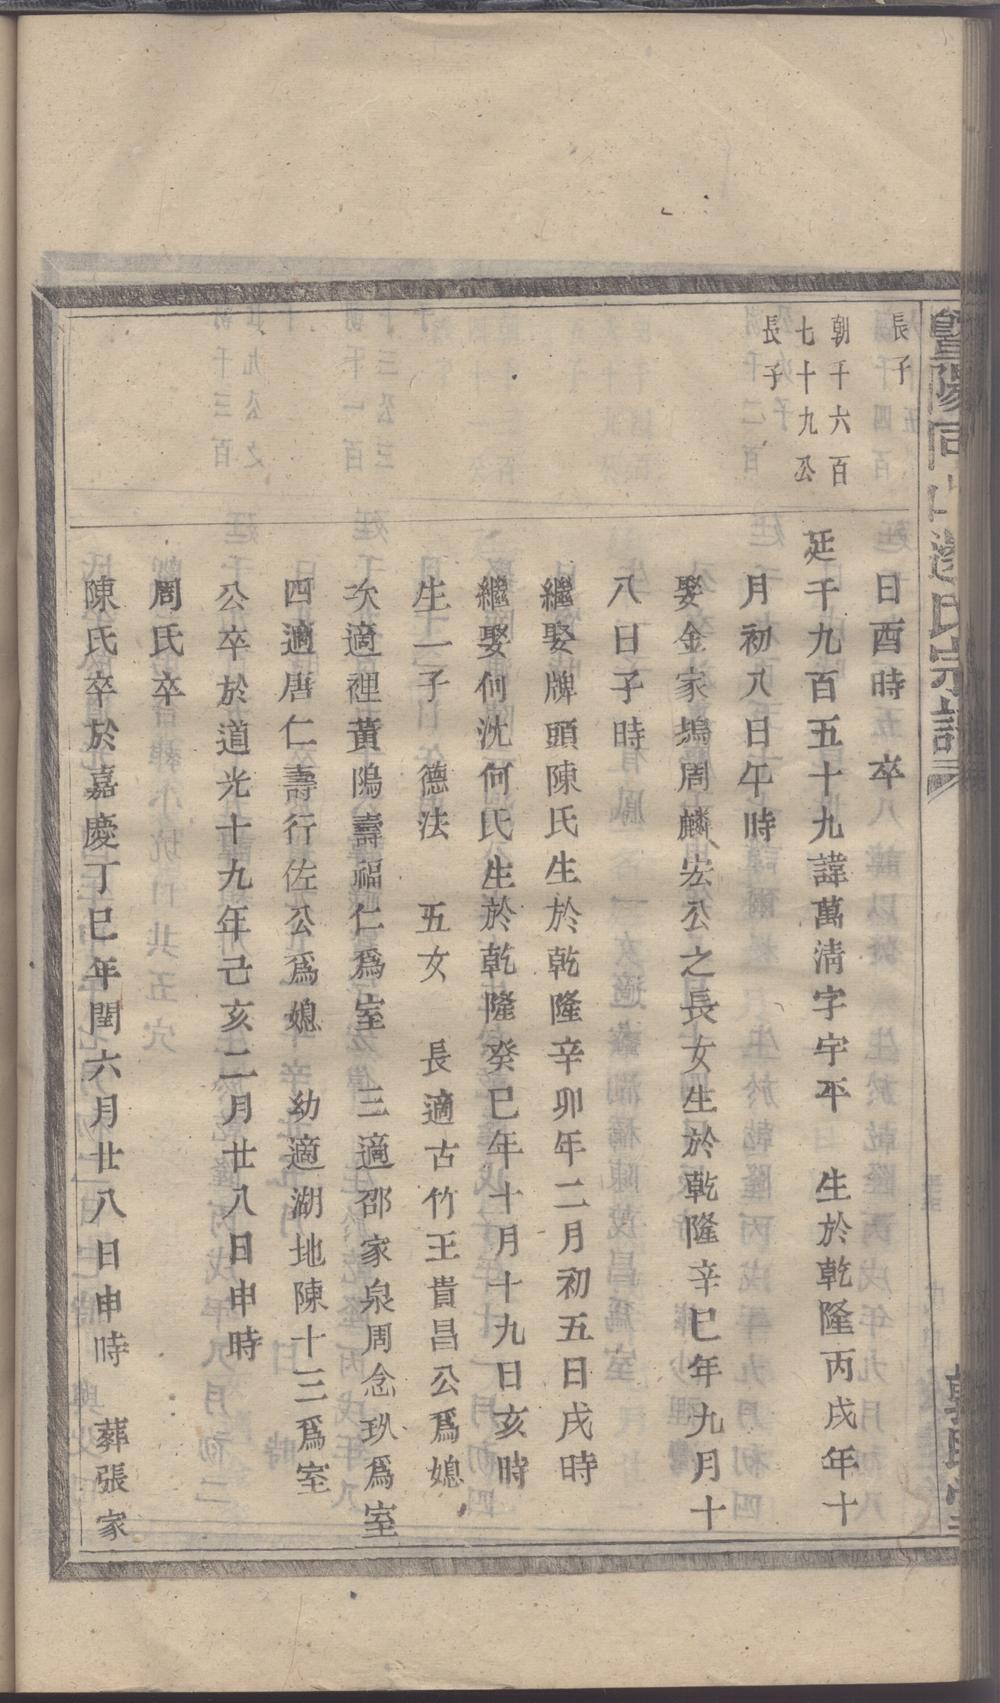 暨陽同山邊氏宗譜
長子
朝千六百
七十九公
長子
日酉時　卒
延千九百五十九諱萬清字宇平　生於乾隆丙戌年十
月初八日午時
娶金家塢周麟宏公之長女生於乾隆辛巳年九月十
八日子時
繼娶牌頭陳氏生於乾隆辛卯年二月初五日戌時
繼娶何沈何氏生於乾隆癸巳年十月十九日亥時
生一子　德法　五女　長適古竹王貴昌公爲媳
次適裡黃鴋壽福仁爲室　三適邵家泉周念玖爲室
四適唐仁壽行佐公爲媳　幼適湖地陳十三爲室
公卒於道光十九年己亥二月廿八日申時
周氏卒
陳氏卒於嘉慶丁巳年閏六月廿八日申時　葬張家